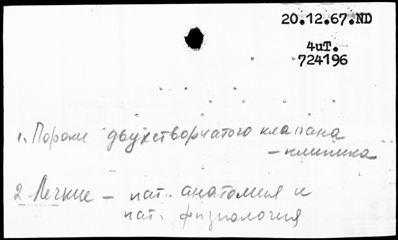 20.12.67.ND
4иТ.
724196
1. Пороки двухстворчатого клапана
– клиника
2. Легкие – пат. анатомия и
пат. физиология